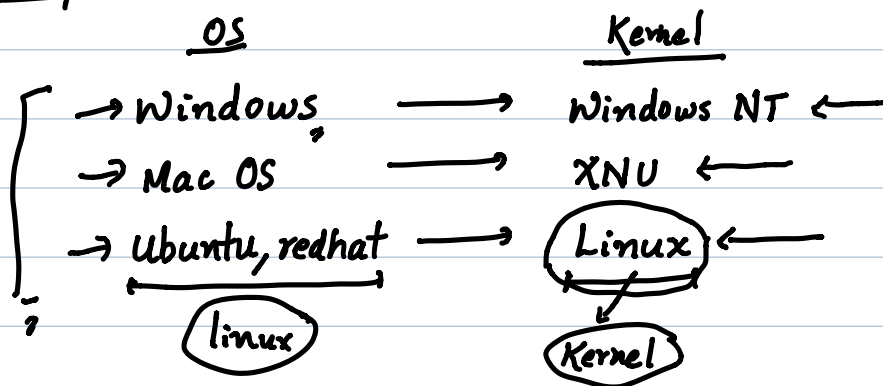 OS Kernel
→ Windows, → Windows NT ←
→ Mac OS → XNU ←
→ Ubuntu, redhat → Linux ←
linux Kernel